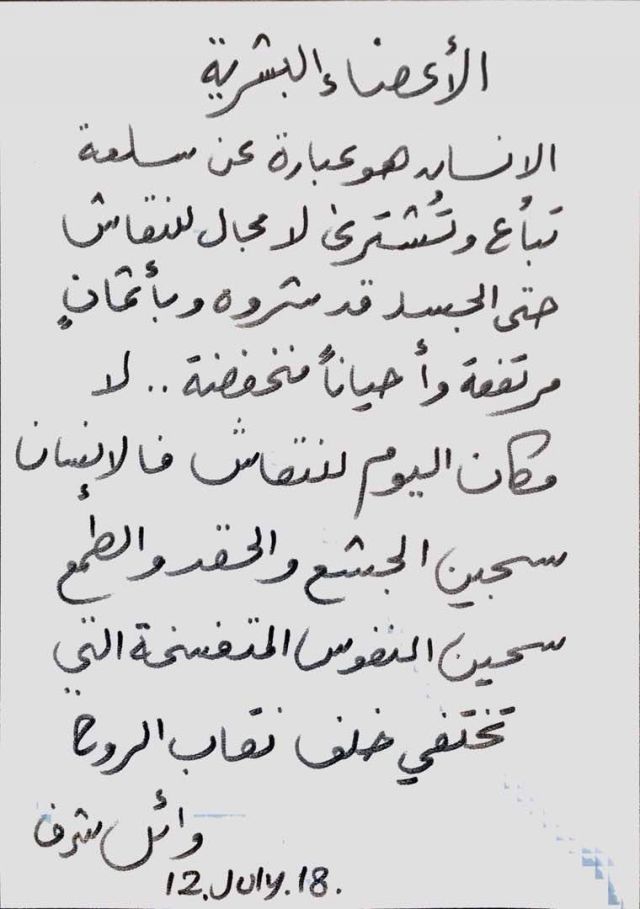 الأعضاء البشرية
الانسان هو عبارة عن سلعة
تباُع وتُشترى لا مجال للنقاش
حتى الجسد قد شروه وبأثمانٍ
مرتفعة وأحياناً منخفضة .. لا
مكان اليوم للنقاش فالإنسان
سجين الجشع والحقد والطمع
سجين النفوس المتفسخة التي
تختفي خلف نقاب الروح
وائل شرف
12.July.18.